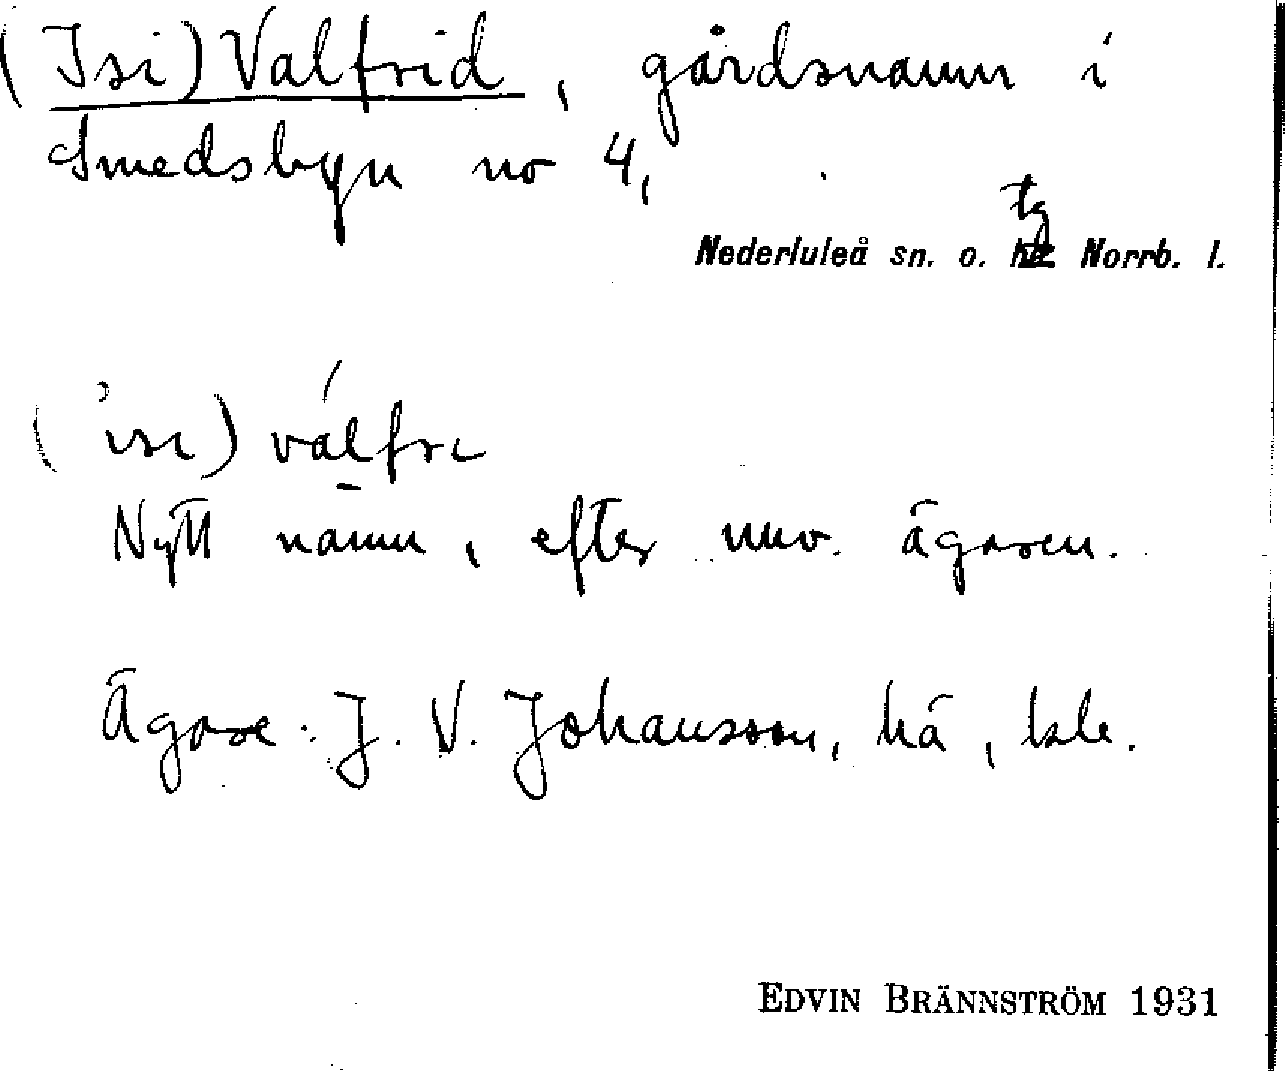 (Isi) Valfrid, gårdsnamn i
Smedsbyn no 4,
tg
Nederluleå sn. o. Norrb. l.
('isi) válfri
Nytt namn, efter nuv. ägaren.
Ägare: J. V. Johansson, hä, kle.
EDVIN BRÄNNSTRÖM 1931